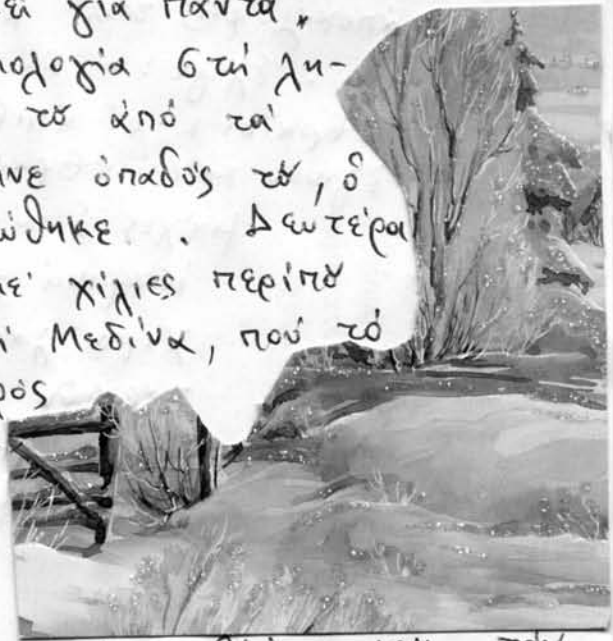 ει γιά πάντα,
ολογία στή λη-
τȣ ἀπό τά
ινε ὀπαδός τȣ, ὁ
ώθηκε. Δευτέρα
μέ χίλιες περίπȣ
ή Μεδίνα, πού τό
ρός